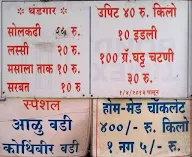 थंडगार
सोलकढी रु.
लस्सी २० रु.
मसाला ताक १० रु.
सरबत १० रु.
उपिट ४० रु. किलो
१० इडली
१०० ग्रॅ. घट्ट चटणी
३० रु.
स्पेशल
आळु वडी
कोथिंबीर वडी
होम-मेड चॉकलेट
४००/- रु. किलो
१ नग ५/- रु.